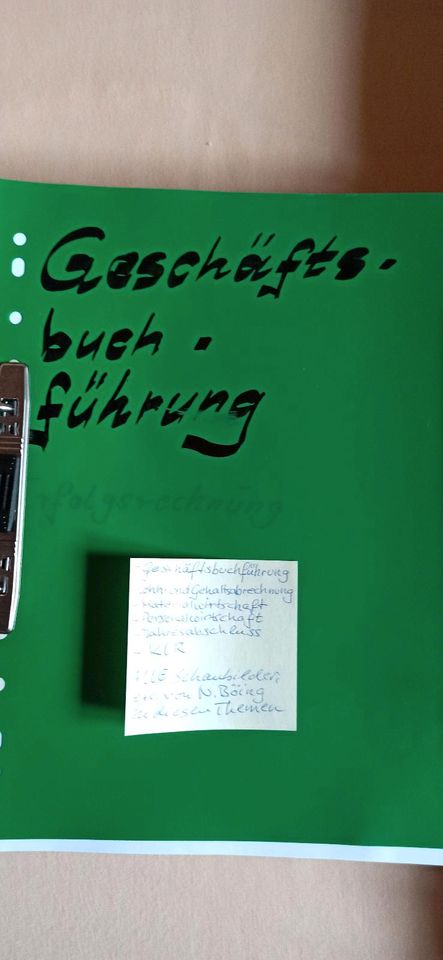 Geschäfts-
buch-
führung
Erfolgsrechnung
- Geschäftsbuchführung
Lohn und Gehaltsabrechnung
- Materialwirtschaft
- Personalwirtschaft
- Jahresabschluss
- KLR
ALLE Schaubilder,
von N. Böing
zu diesen Themen